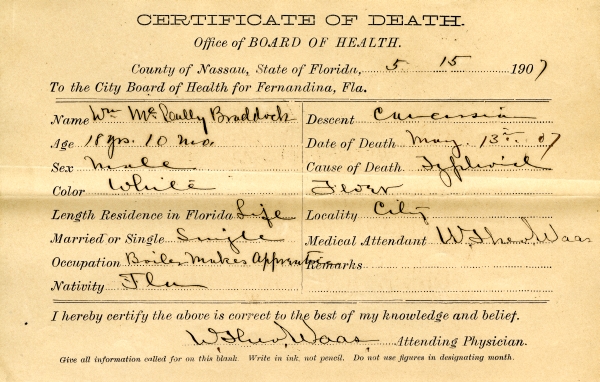 CERTIFICATE OF DEATH.
Office of BOARD OF HEALTH.
County of Nassau, State of Florida, 5 15 1907
To the City Board of Health for Fernandina, Fla.
Name Wm McCully Braddock
Age 18 yrs. 10 mo.
Sex Male
Color White
Length Residence in Florida Life
Married or Single Single
Occupation Boiler Makes Apprentice
Nativity Fla
Descent Caucassian
Date of Death May. 13th. 07
Cause of Death Typhoid
Fever
Locality City
Medical Attendant W, Theo, Waas
Remarks
I hereby certify the above is correct to the best of my knowledge and belief.
W, Theo, Waas, Attending Physician.
Give all information called for on this blank. Write in ink, not pencil. Do not use figures in designating month.